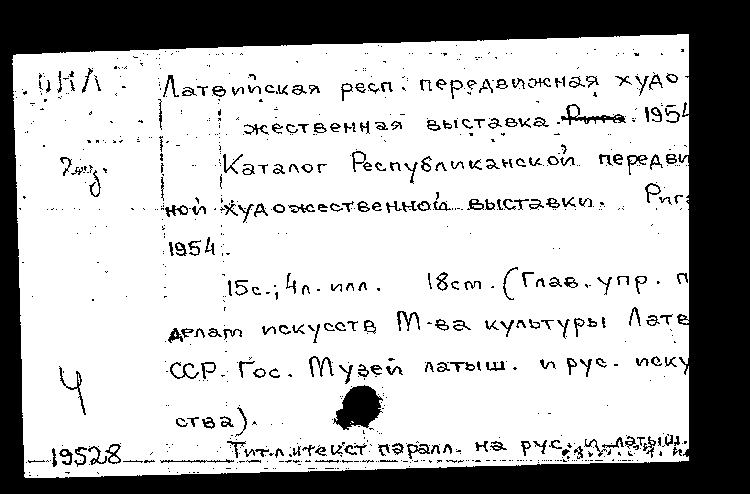 ОИЛ
Латвийская респ. передвижная худо-
жественная выставка. Рига. 1954
2 экз.
Каталог Республиканской передви
ной художественной выставки. Рига
1954.
15с.; 4л. илл. 18см. (Глав. упр. п
делам искусств М-ва культуры Латв
ССР. Гос. Музей латыш. и рус. иску
ства).
Ч
19528
Тит.л. и текст паралл. на рус. и латыш.